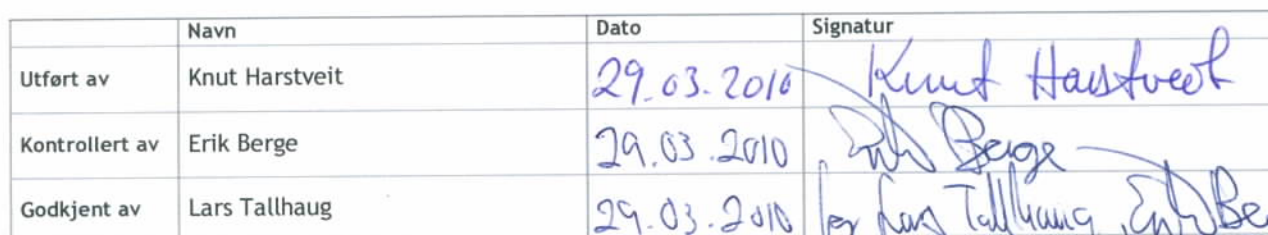 Navn Dato Signatur
Utført av Knut Harstveit 29.03.2010 Knut Harstveit
Kontrollert av Erik Berge 29.03.2010 Erik Berge
Godkjent av Lars Tallhaug 29.03.2010 for Lars Tallhaug, Erik Be